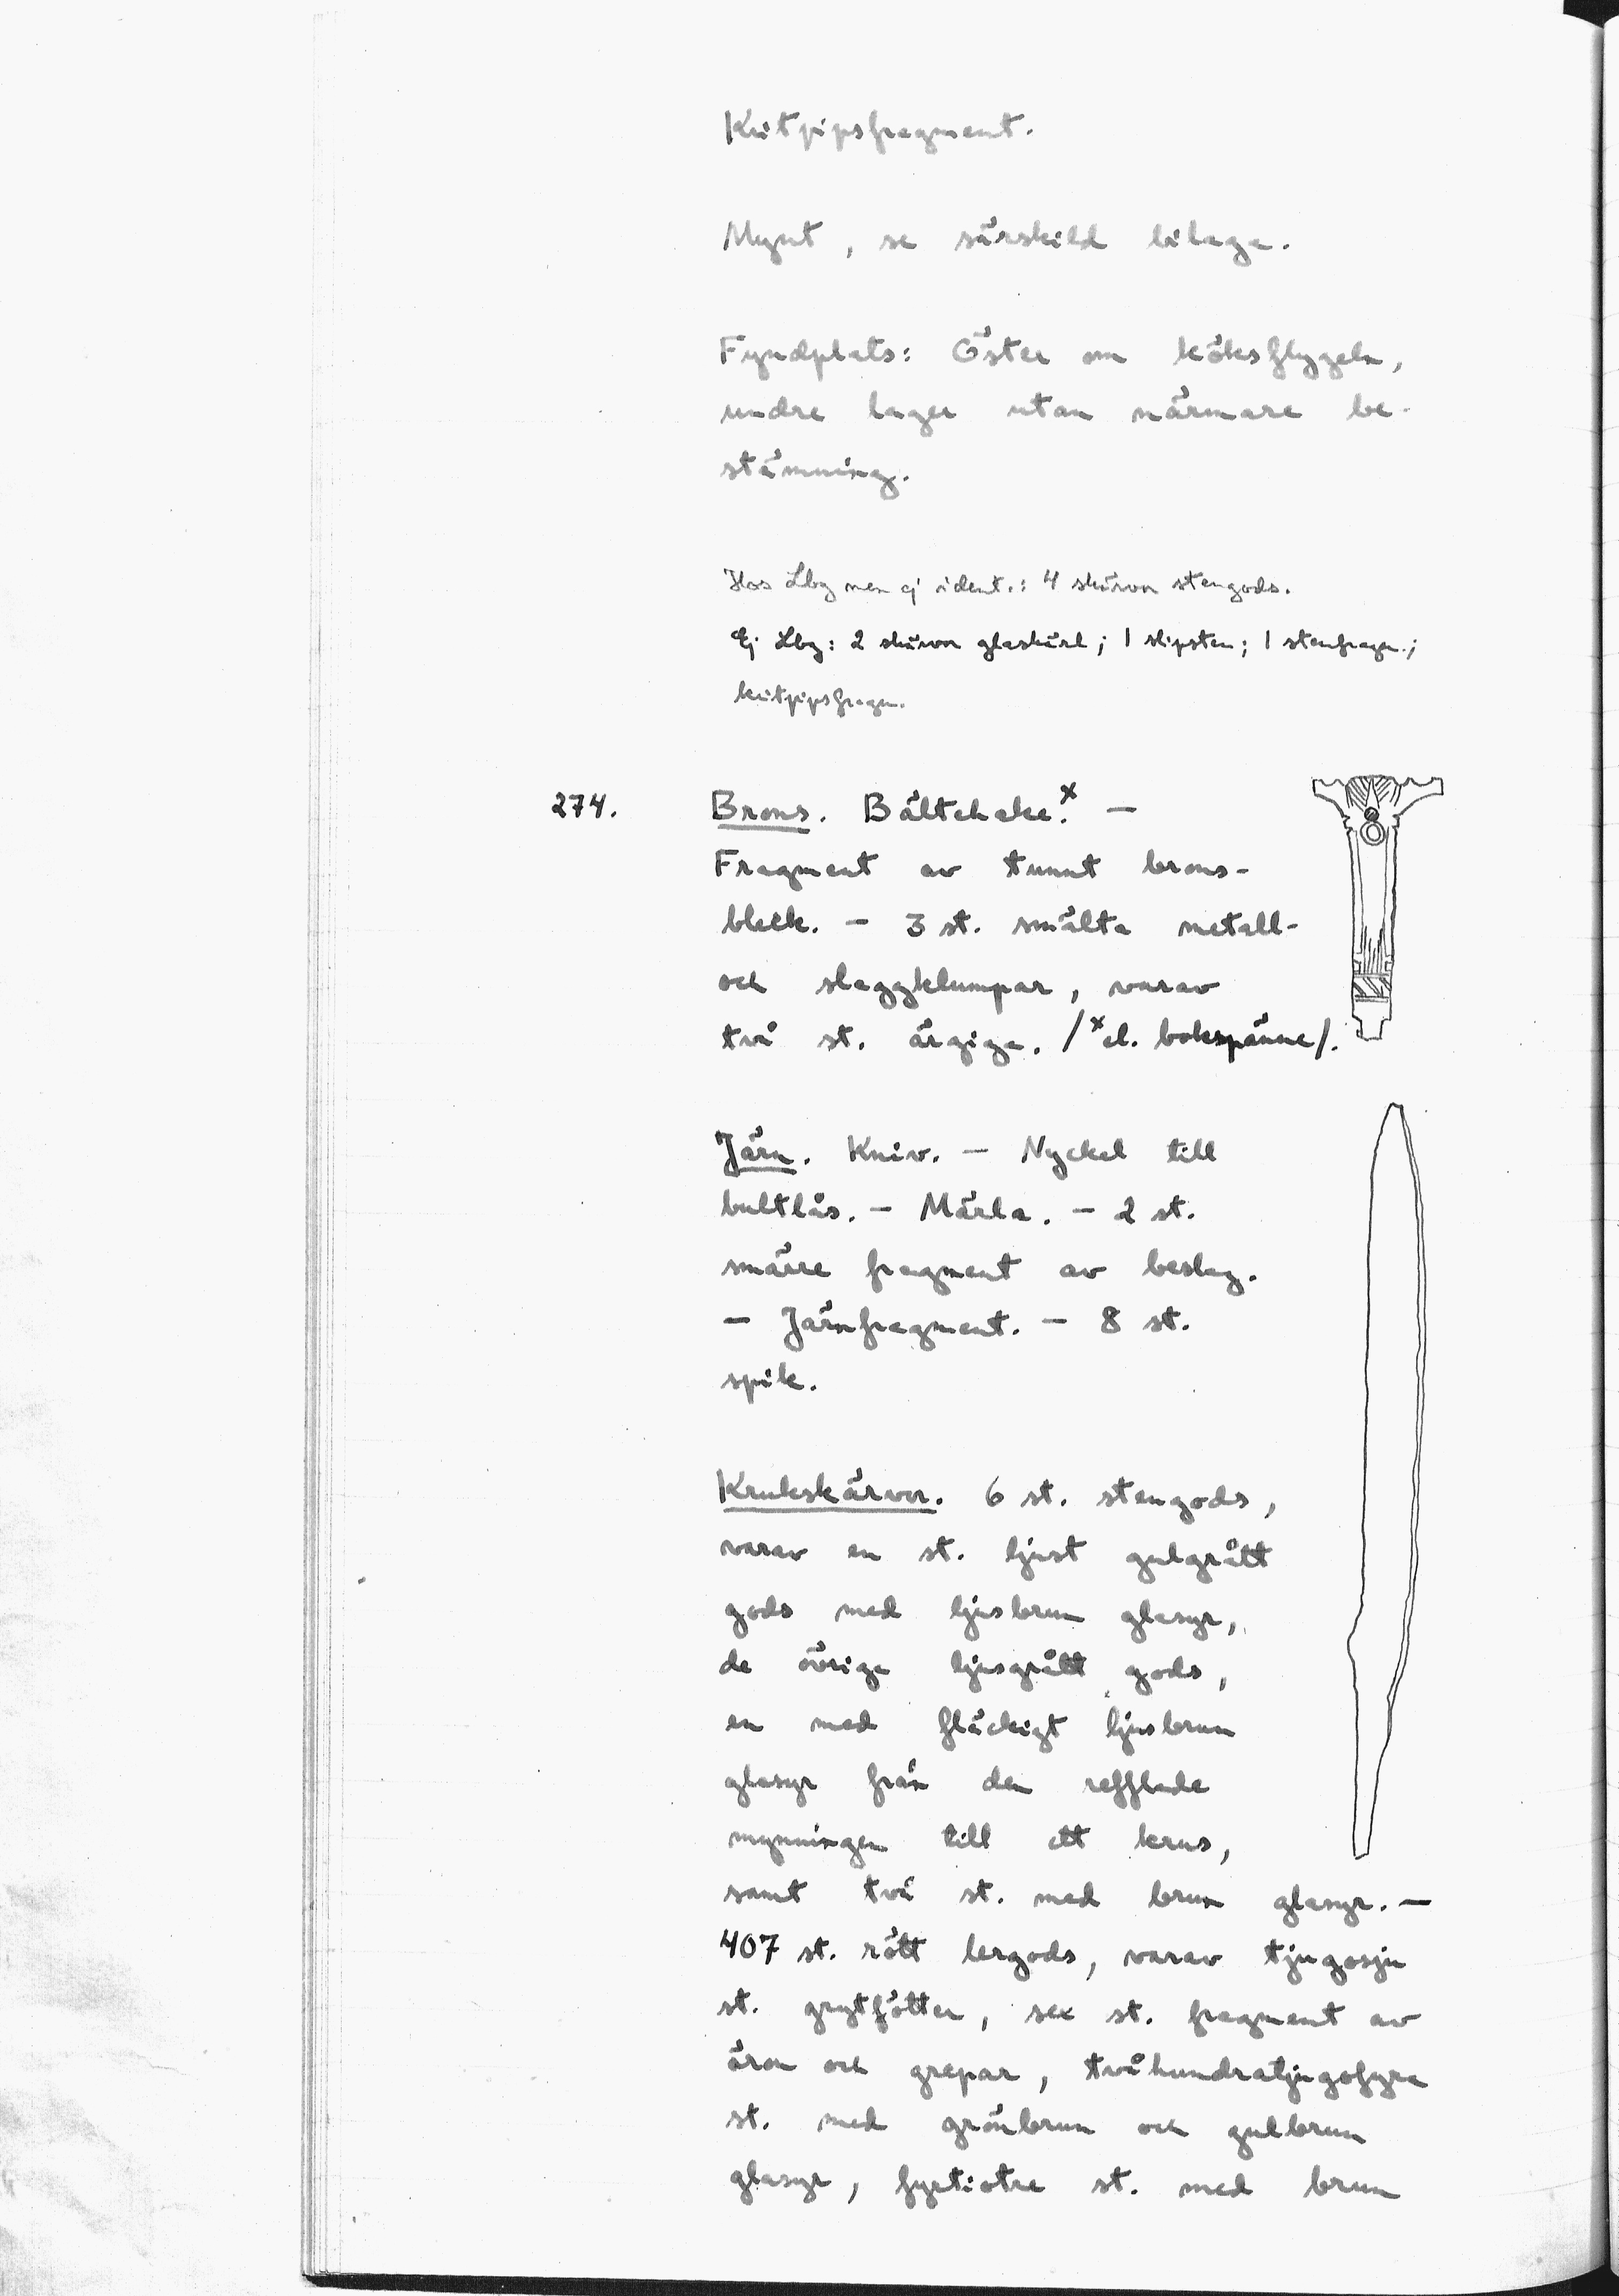 Kritpipsfragment.
Mynt, se särskild bilaga.
Fyndplats: Öster om köksflygeln,
undre lager utan närmare be-
stämning.
Hos Lbg men ej ident.: 4 skärvor stengods.
Ej Lbg: 2 skärvor glaskärl; 1 slipsten; 1 stenfragm.;
kritpipsfragm.
274. Brons. Bälteshake.x —
Fragment av tunnt brons-
bleck. — 3 st. smälta metall-
och slaggklumpar, varav
två st. ärgiga. /x el. bokspänne/.
Järn. Kniv. — Nyckel till
bultlås. — Märla. — 2 st.
smärre fragment av beslag.
— Järnfragment. — 8 st.
spik.
Krukskärvor. 6 st. stengods,
varav en st. ljust gulgrått
gods med ljusbrun glasyr,
de övriga ljusgrått gods,
en med fläckigt ljusbrun
glasyr från den refflade
mynningen till ett krus,
samt två st. med brun glasyr. —
407 st. rött lergods, varav tjugosju
st. grytfötter, sex st. fragment av
öron och grepar, tvåhundratjugofyra
st. med grönbrun och gulbrun
glasyr, fyrtiotre st. med brun